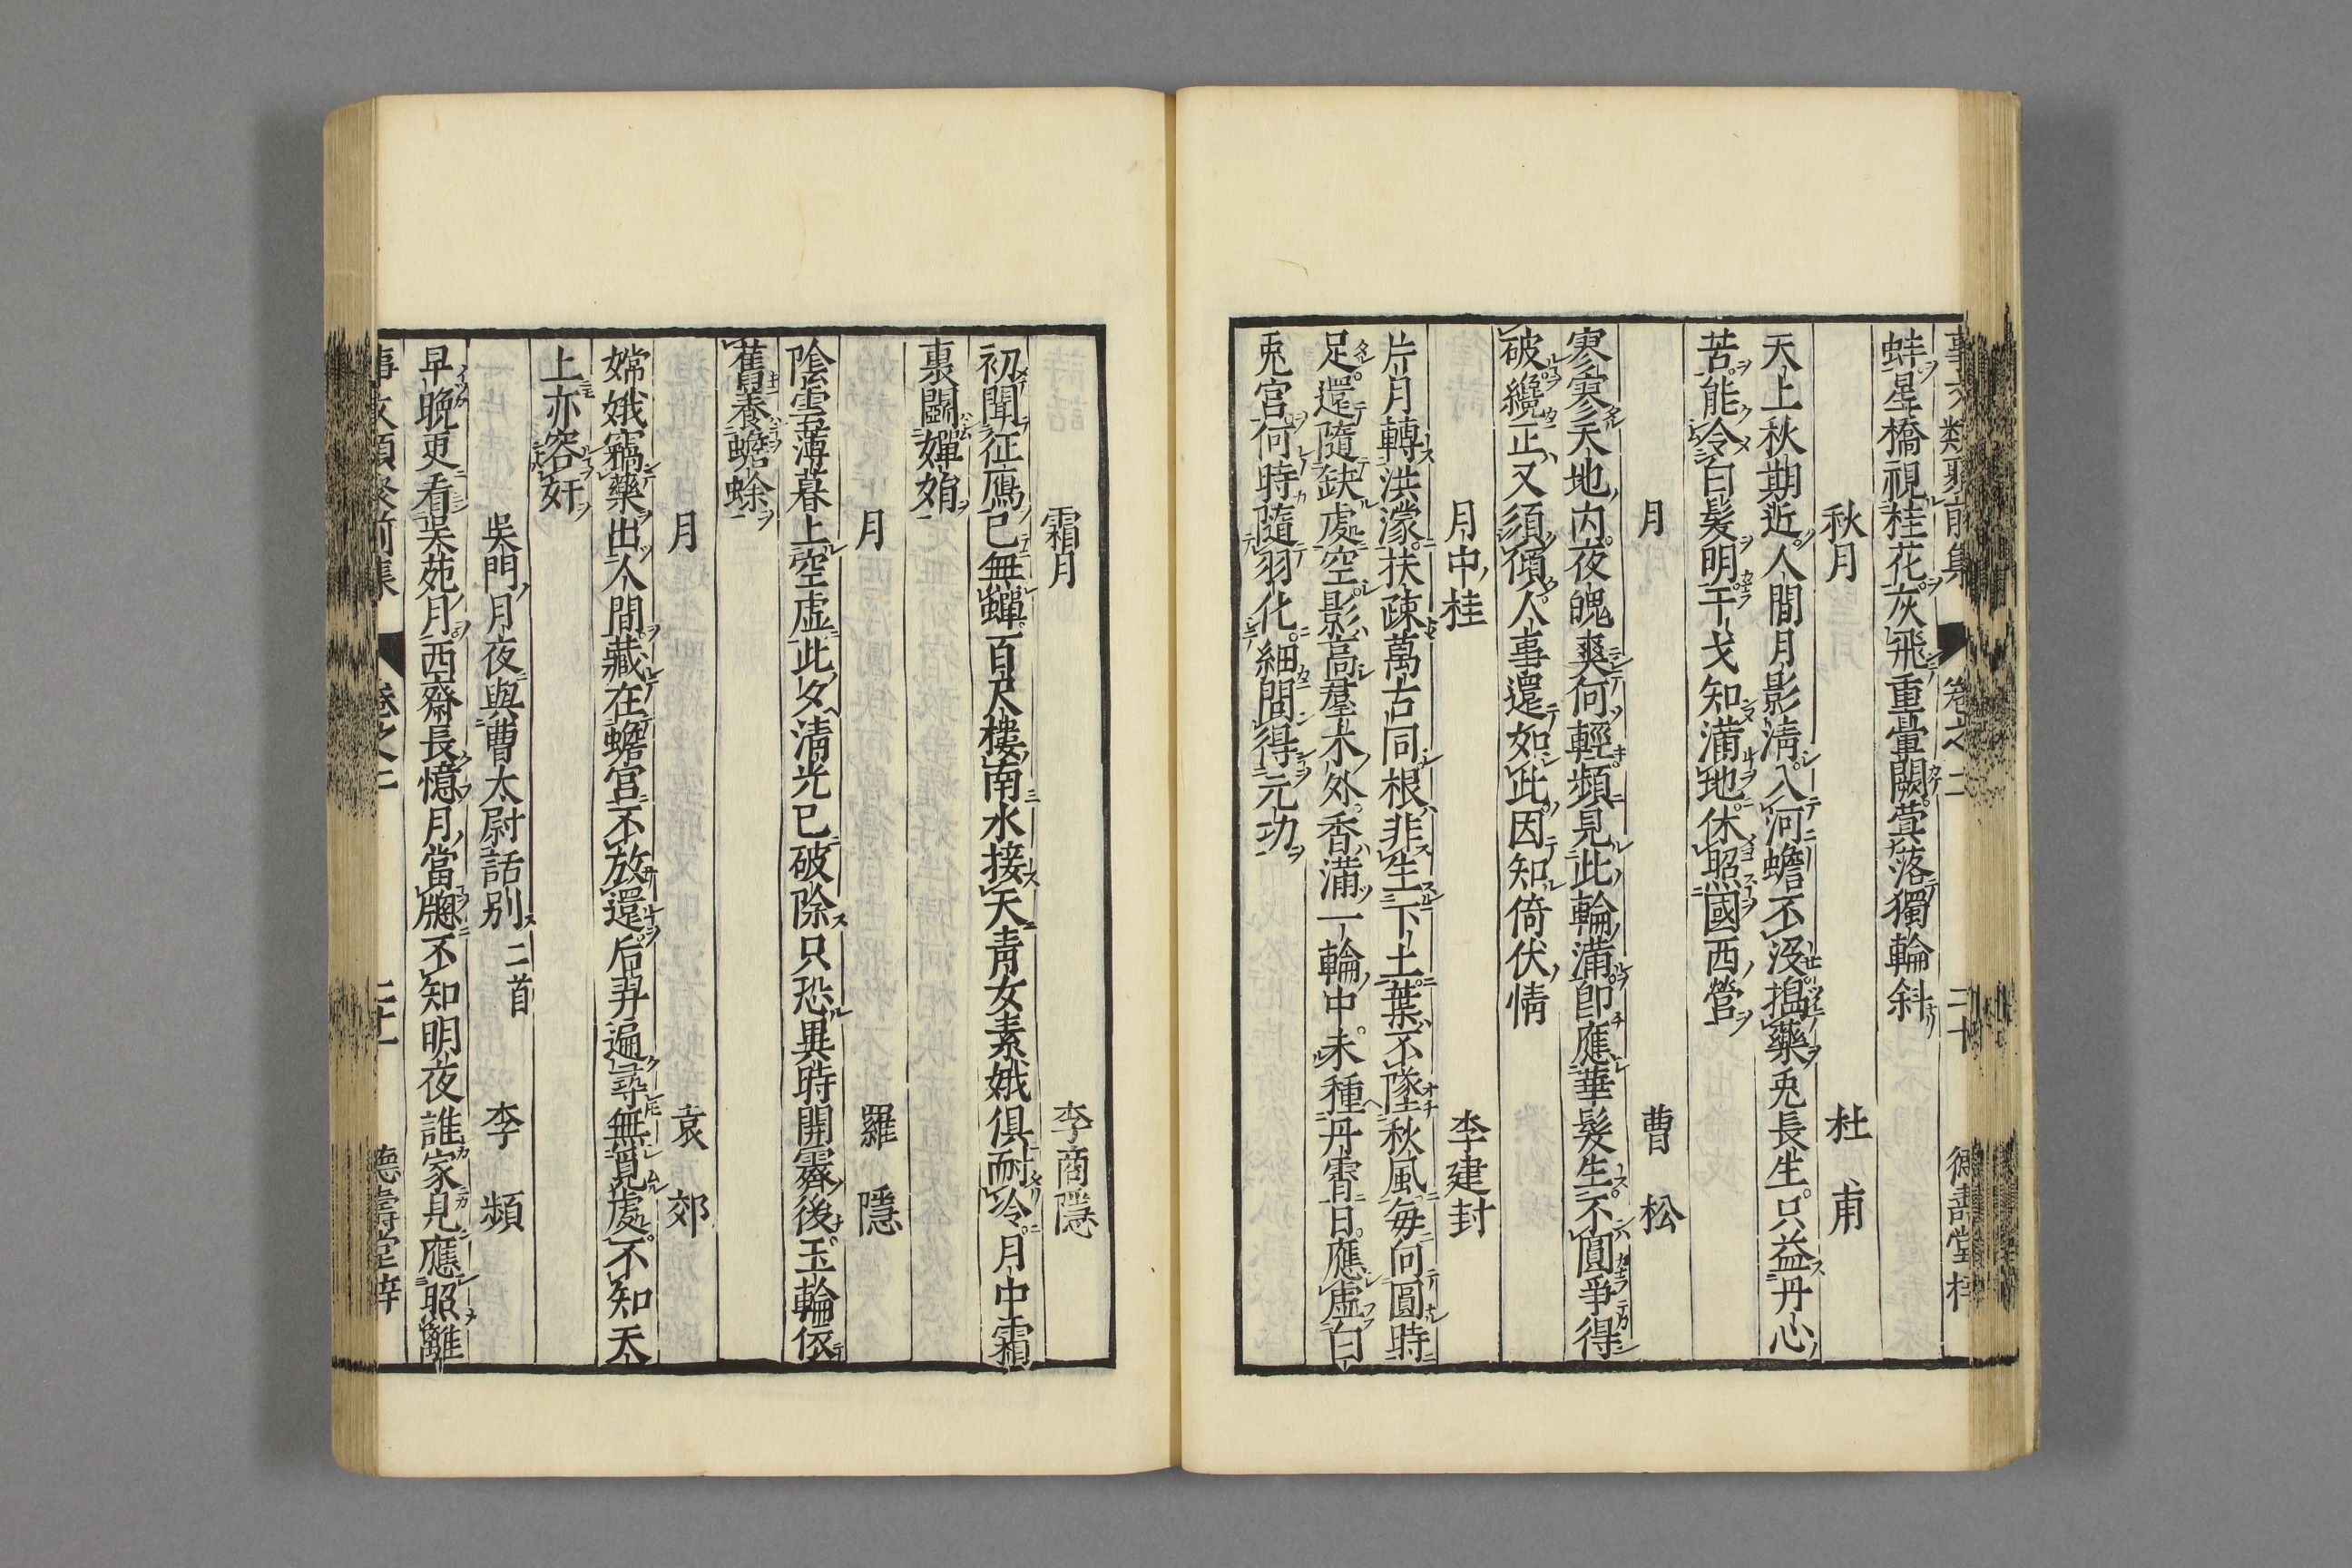 事文類聚前集 卷之二 二十 德壽堂梓
蚌星橋視桂花灰飛重暈闕蓂落獨輪斜
秋月 杜甫
天上秋期近人間月影淸入河蟾不沒搗藥兎長生只益丹心
苦能令白髮明干戈知滿地休照國西營
月 曹松
寥寥天地内夜魄爽何輕頻見此輪滿卽應華髮生不圓爭得
破纔正又須傾人事還如此因知倚伏情
月中桂 李建封
片月轉洪濛扶疎萬古同根非生下土葉不墜秋風每向圓時
足還隨缺處空影高羣木外香滿一輪中未種丹霄日應虛白
兎宮何時隨羽化細問得元功
霜月 李商隱
初聞征鴈已無蟬百尺樓南水接天靑女素娥俱耐冷月中霜
裏鬬嬋娟
月 羅隱
陰雲薄暮上空虛此夕淸光已破除只恐異時開霽後玉輪依
舊養蟾蜍
月 袁郊
嫦娥竊藥出人間藏在蟾宮不放還后羿遍尋無覓處不知天
上亦容奸
吳門月夜與曹太尉話别二首 李頻
早晩更看吳苑月西齋長憶月當牕不知明夜誰家見應照離
事文類聚前集 卷之二 二十一 德壽堂梓